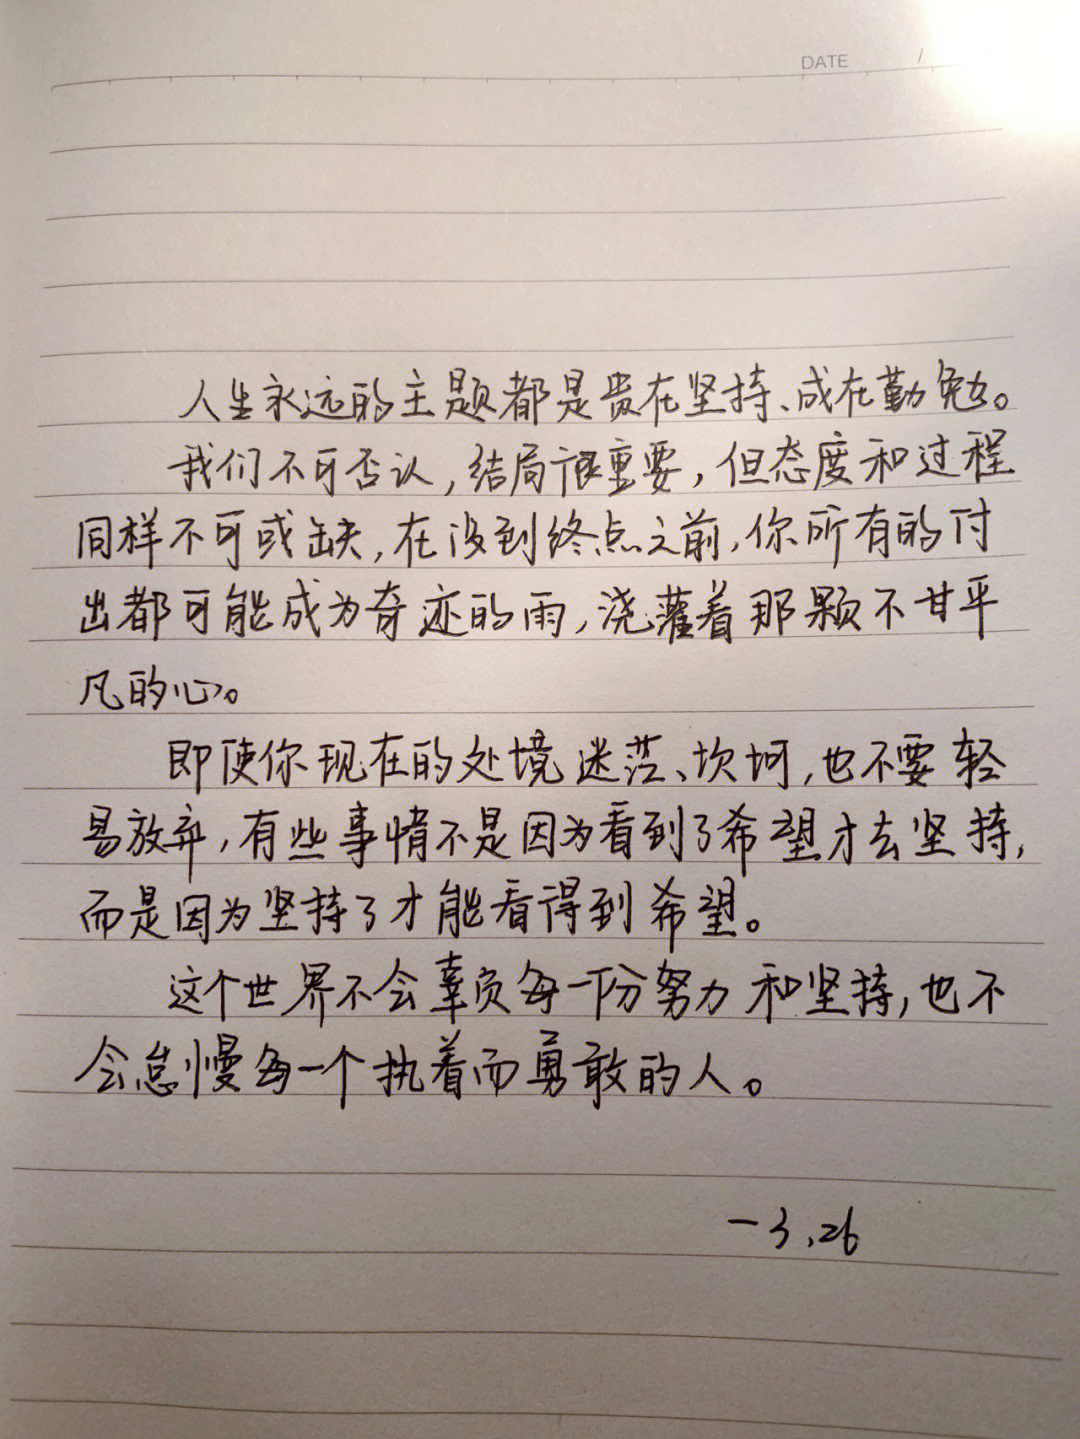 DATE /
人生永远的主题都是贵在坚持、成在勤勉。
我们不可否认,结局很重要,但态度和过程
同样不可或缺,在没到终点之前,你所有的付
出都可能成为奇迹的雨,浇灌着那颗不甘平
凡的心。
即使你现在的处境迷茫、坎坷,也不要轻
易放弃,有些事情不是因为看到了希望才去坚持,
而是因为坚持了才能看得到希望。
这个世界不会辜负每一份努力和坚持,也不
会怠慢每一个执着而勇敢的人。
—3.26